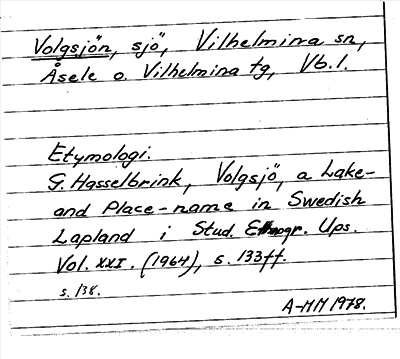 Volgsjön, sjö, Vilhelmina sn,
Åsele o. Vilhelmina tg, Vb.l.
Etymologi.
G. Hasselbrink, Volgsjö, a Lake-
and Place-name in Swedish
Lapland i Stud. Ethnogr. Ups.
Vol. XXI. (1964), s. 133ff.
s. 138.
A-MM 1978.